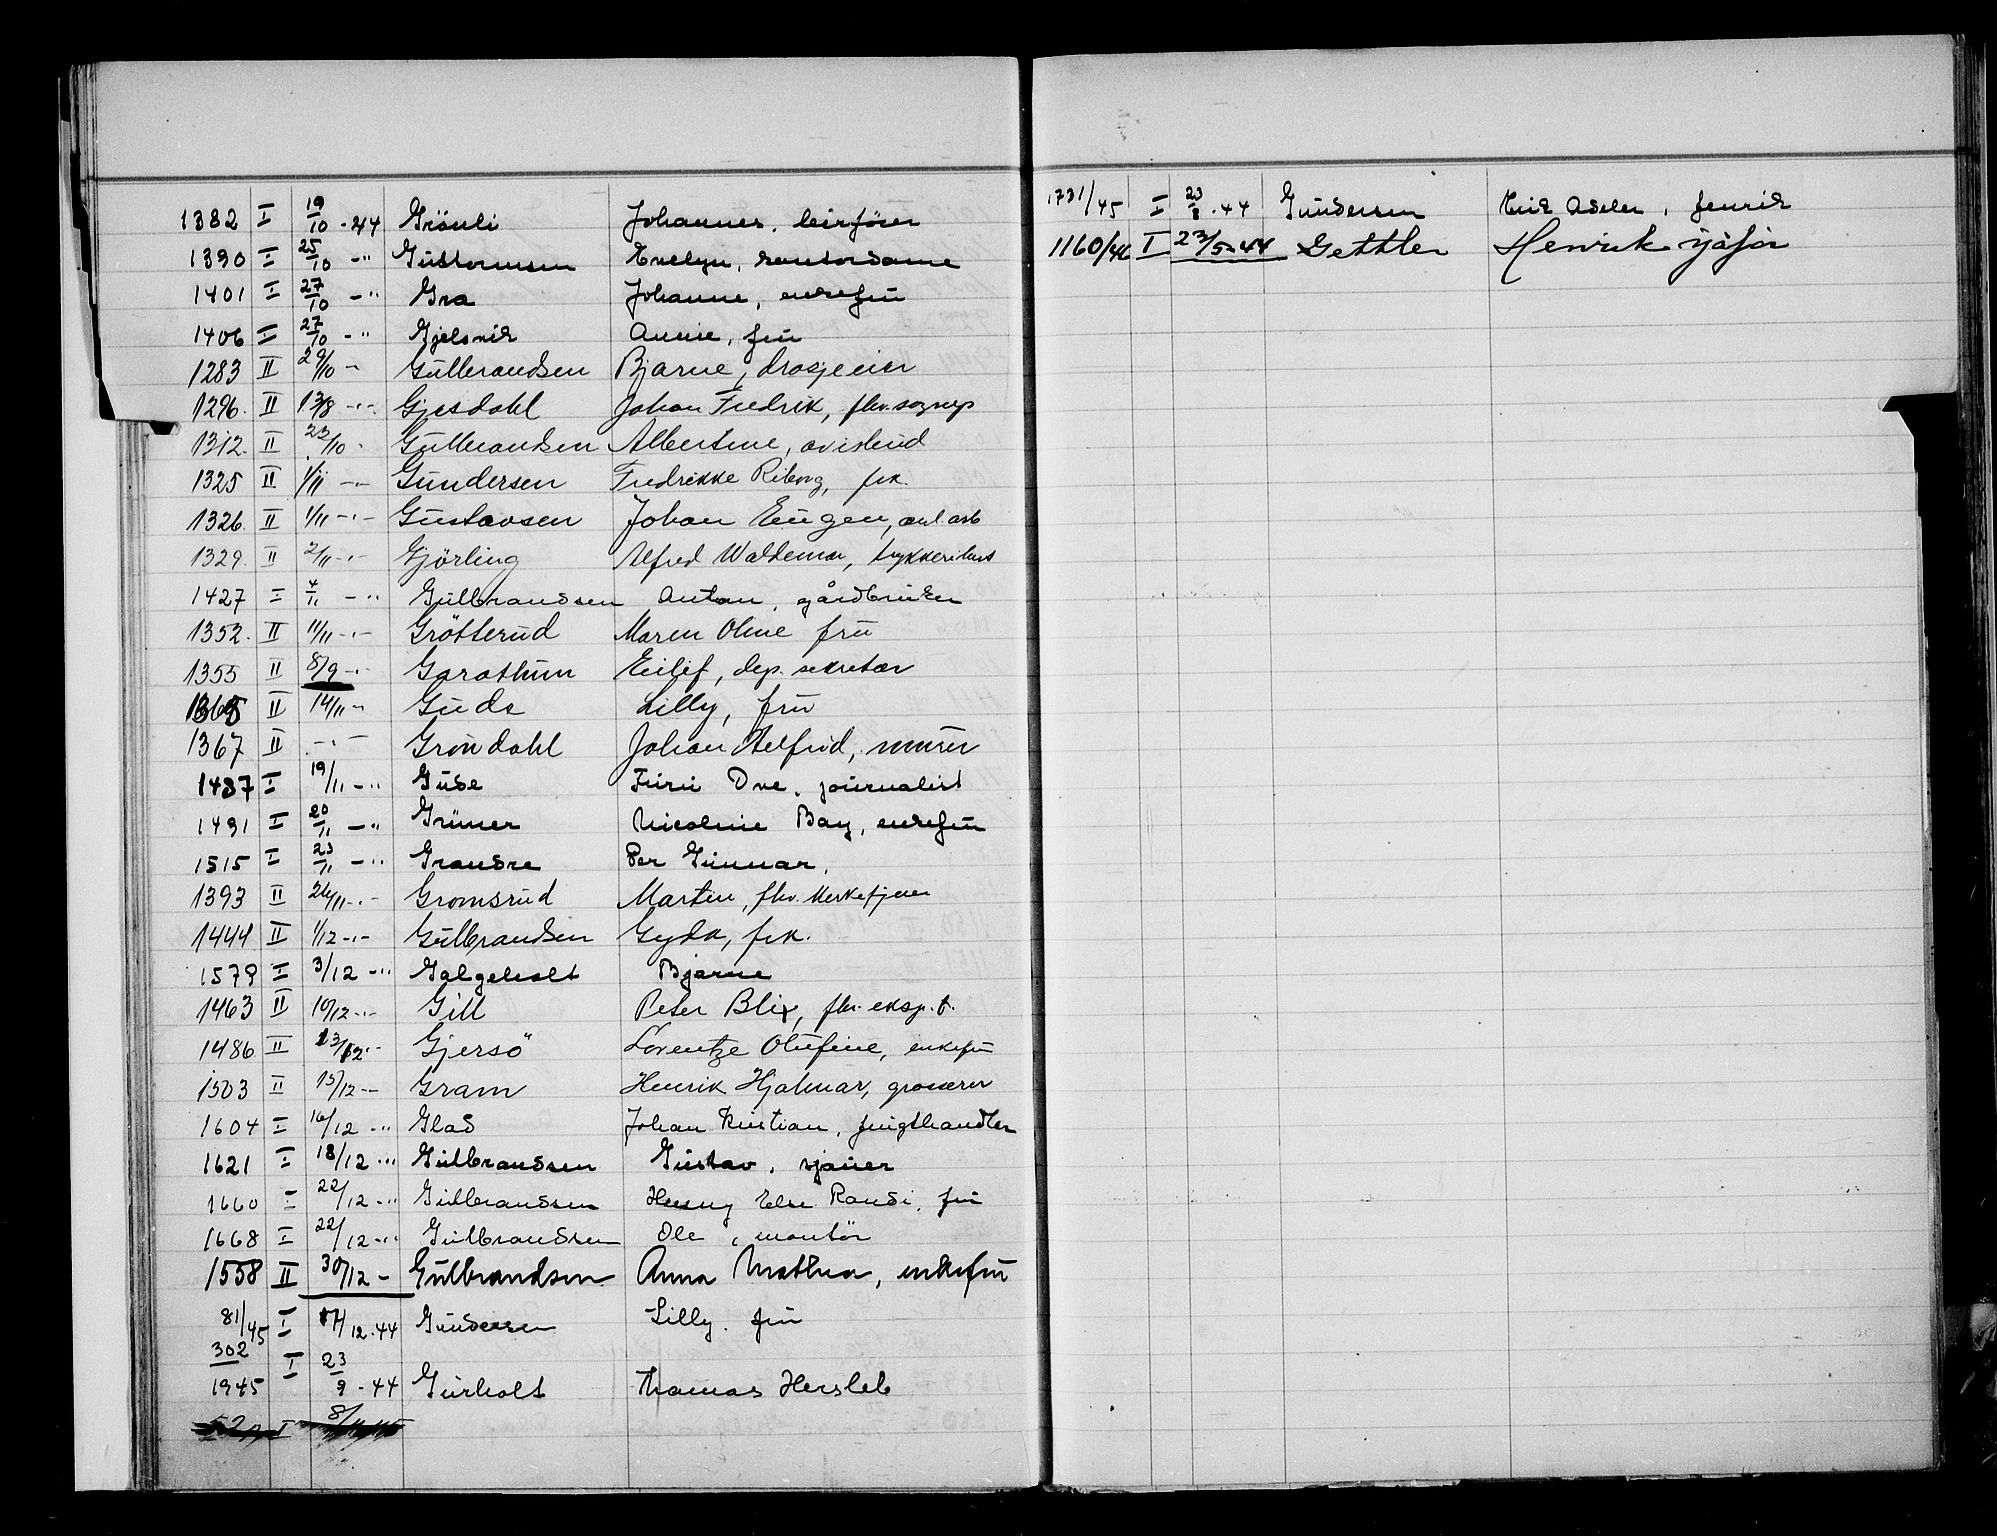 1382 I 19/10 - 44 Grönli Johannes, leirförer
1390 I 25/10 - " Gustormsen Evelyn, kontordame
1401 I 27/10 - " Gra Johanne, enkefru
1406 I 27/10 - " Gjelsvik Annie, fru
1283 II 29/10 - Gulbrandsen Bjarne, drosjeeier
1296. II 13/8 -"- Gjesdahl Johan Fredrik, fhv. sognep
1312. II 22/10 - Gulbrandsen Albertine, avisbud
1325 II 1/11 -"- Gundersen Fredrikke Riborg, frk.
1326. II 1/11 -"- Gustavsen Johan Eugen, anl. arb
1329. II 2/11 -"- Gjörling Alfred Waldemar,
1427 I 4/11 - " Gulbrandsen Anton, gårdbruker
1352. II 11/11 -"- Grötterud Maren Oline fru
1355 II 8/9 -"- Garathun Eilif, dep. sekretær
1365 II 14/11 - Gude Lilly, fru
1367 II -"- Gröndahl Johan Alfred, murer
1487 I 19/11 - " Gude Ove, journalist
1491 I 20/11 - " Grüner Nicoline Bay, enkefru
1515 I 23/11 - " Grandre Per Gunnar,
1393 II 24/11 -"- Gromsrud Martin, fhv.
1444 II 1/12 -"- Gulbrandsen Gyda, frk.
1579 I 3/12 - " Galgeholt Bjarne
1463 II 10/12 -"- Gill Peter Blix, fhv. eksp. f.
1486 II 13/12 -"- Gjersö Lorentze Olufine, enkefru
1503 II 15/12 - Gram Henrik Hjalmar, grosserer
1604 I 16/12 - " Glad Johan Kristian, frugthandler
1621 I 18/12 - " Gulbrandsen Gustav, sjauer
1660 I 22/12 - " Gulbrandsen Henny Else Randi, fru
1668 I 22/12 - " Gulbrandsen Ole, montör
1558 II 30/12 - Gulbrandsen Anna Mathea, enkefru
81/45 I 17/12 - 44 Gundersen Lilly, fru
302/1945 I 23/9 - 44 Gurholt Thomas Hersleb
I
1731/45 I 23/8 - 44 Gundersen Erik Adeler, fenrik
1160/46 I 23/5 - 44 Gettler Henrik sjåför